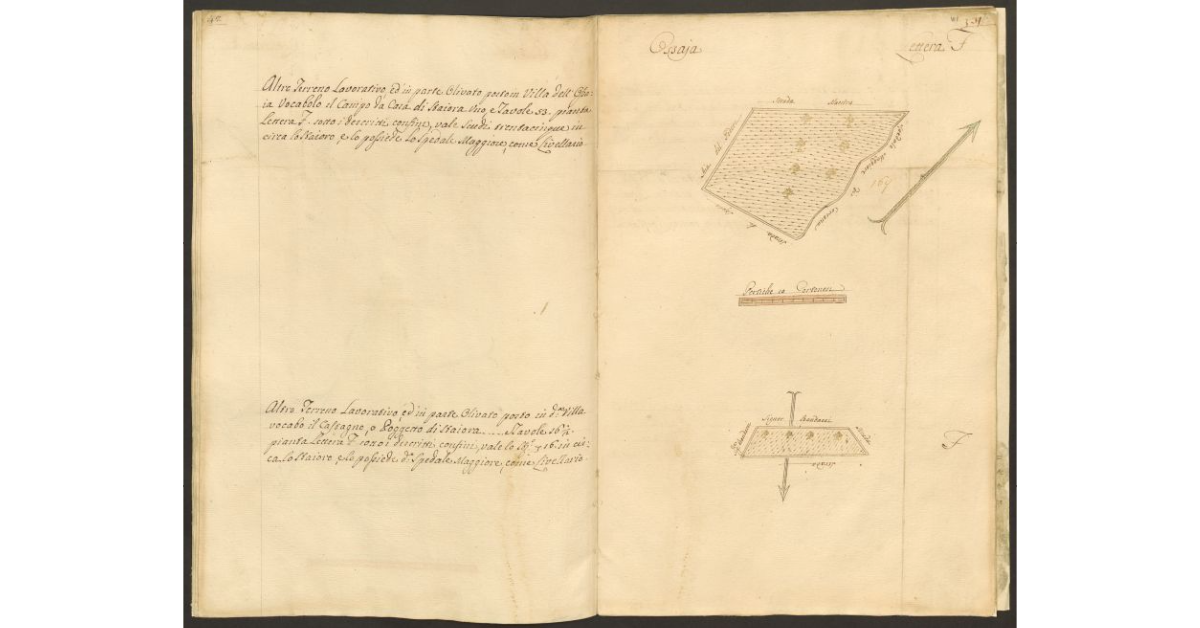 40
Altro Terreno Lavorativo, ed in parte Olivato posto in Villa dell' Ossa:
ia Vocabolo il Campo da Casa di Staiora uno, e Tavole 53. pianta
Lettera F. sotto i descritti confini, vale Scudi trentacinque in
circa lo Staioro, e lo possiede lo Spedale Maggiore, come Livellario.
Altro Terreno Lavorativo, ed in parte Olivato posto in d.ta Villa
vocabo il Castagno, o Poggetto di Staiora..... Tavole 16½
pianta Lettera F. sotto i descritti confini, vale lo St.ro 16. in cir:
ca lo Staioro, e lo possiede d.o Spedale Maggiore, come Livellario.
Ossaja
Lettera F
Strada Maestra
Pertiche 10 Cortonesi
Signor
Strada
Strada
F